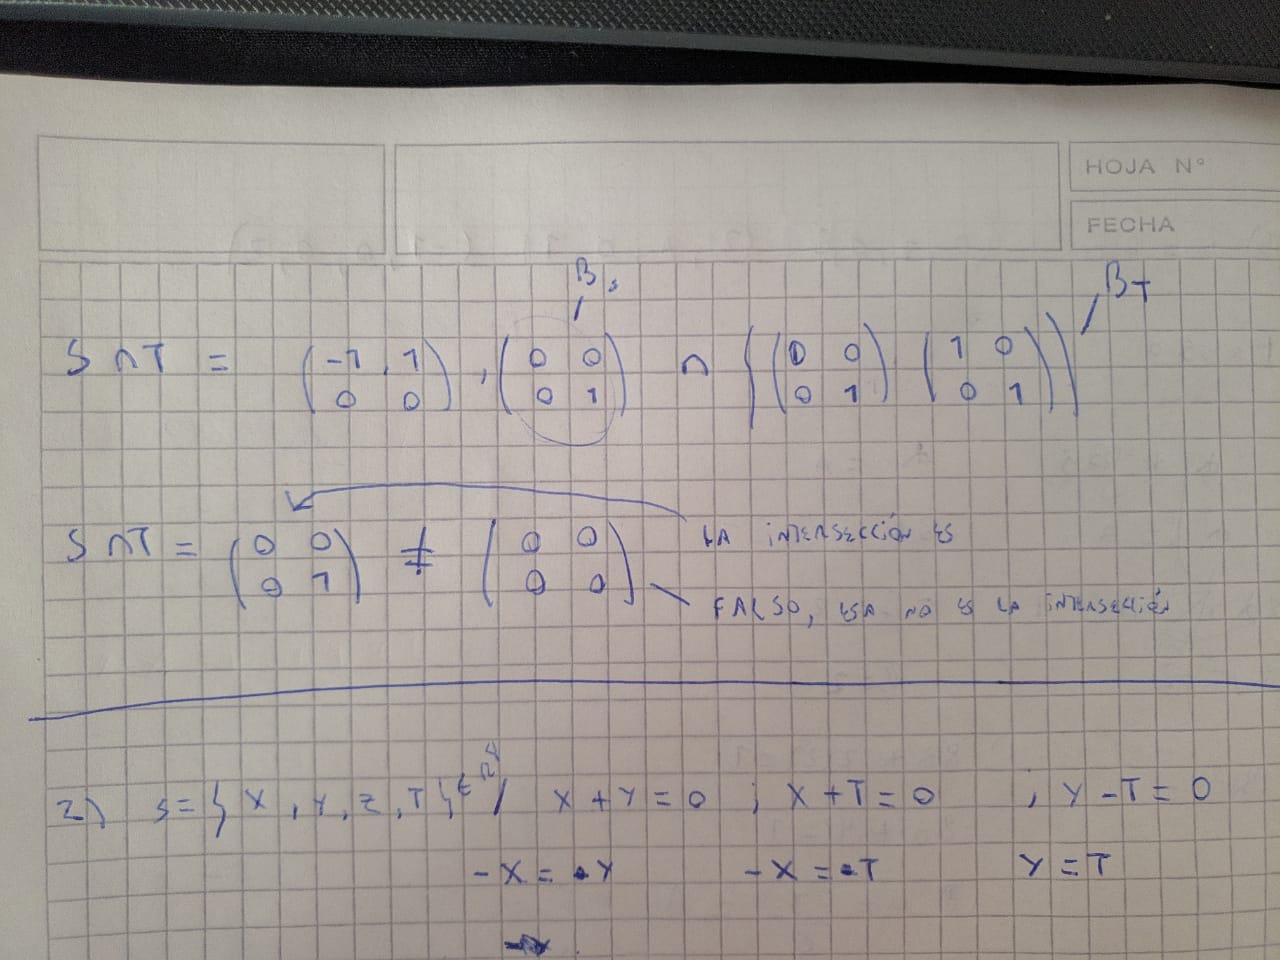 HOJA N°
FECHA
Bs
BT
S ∩ T = (-1, 1 / 0 0), (0 0 / 0 1) ∩ {(0 0 / 0 1) (1 0 / 0 1)}
S ∩T = (0 0 / 0 1) ≠ (0 0 / 0 0)
LA INTERSECCIÓN ES
FALSO, ESA NO ES LA INTERSECCIÓN
2) S={X, Y, Z, T}∈ R⁴/ X+Y=0 ; X+T=0 ; Y-T=0
-X = Y -X = T Y=T